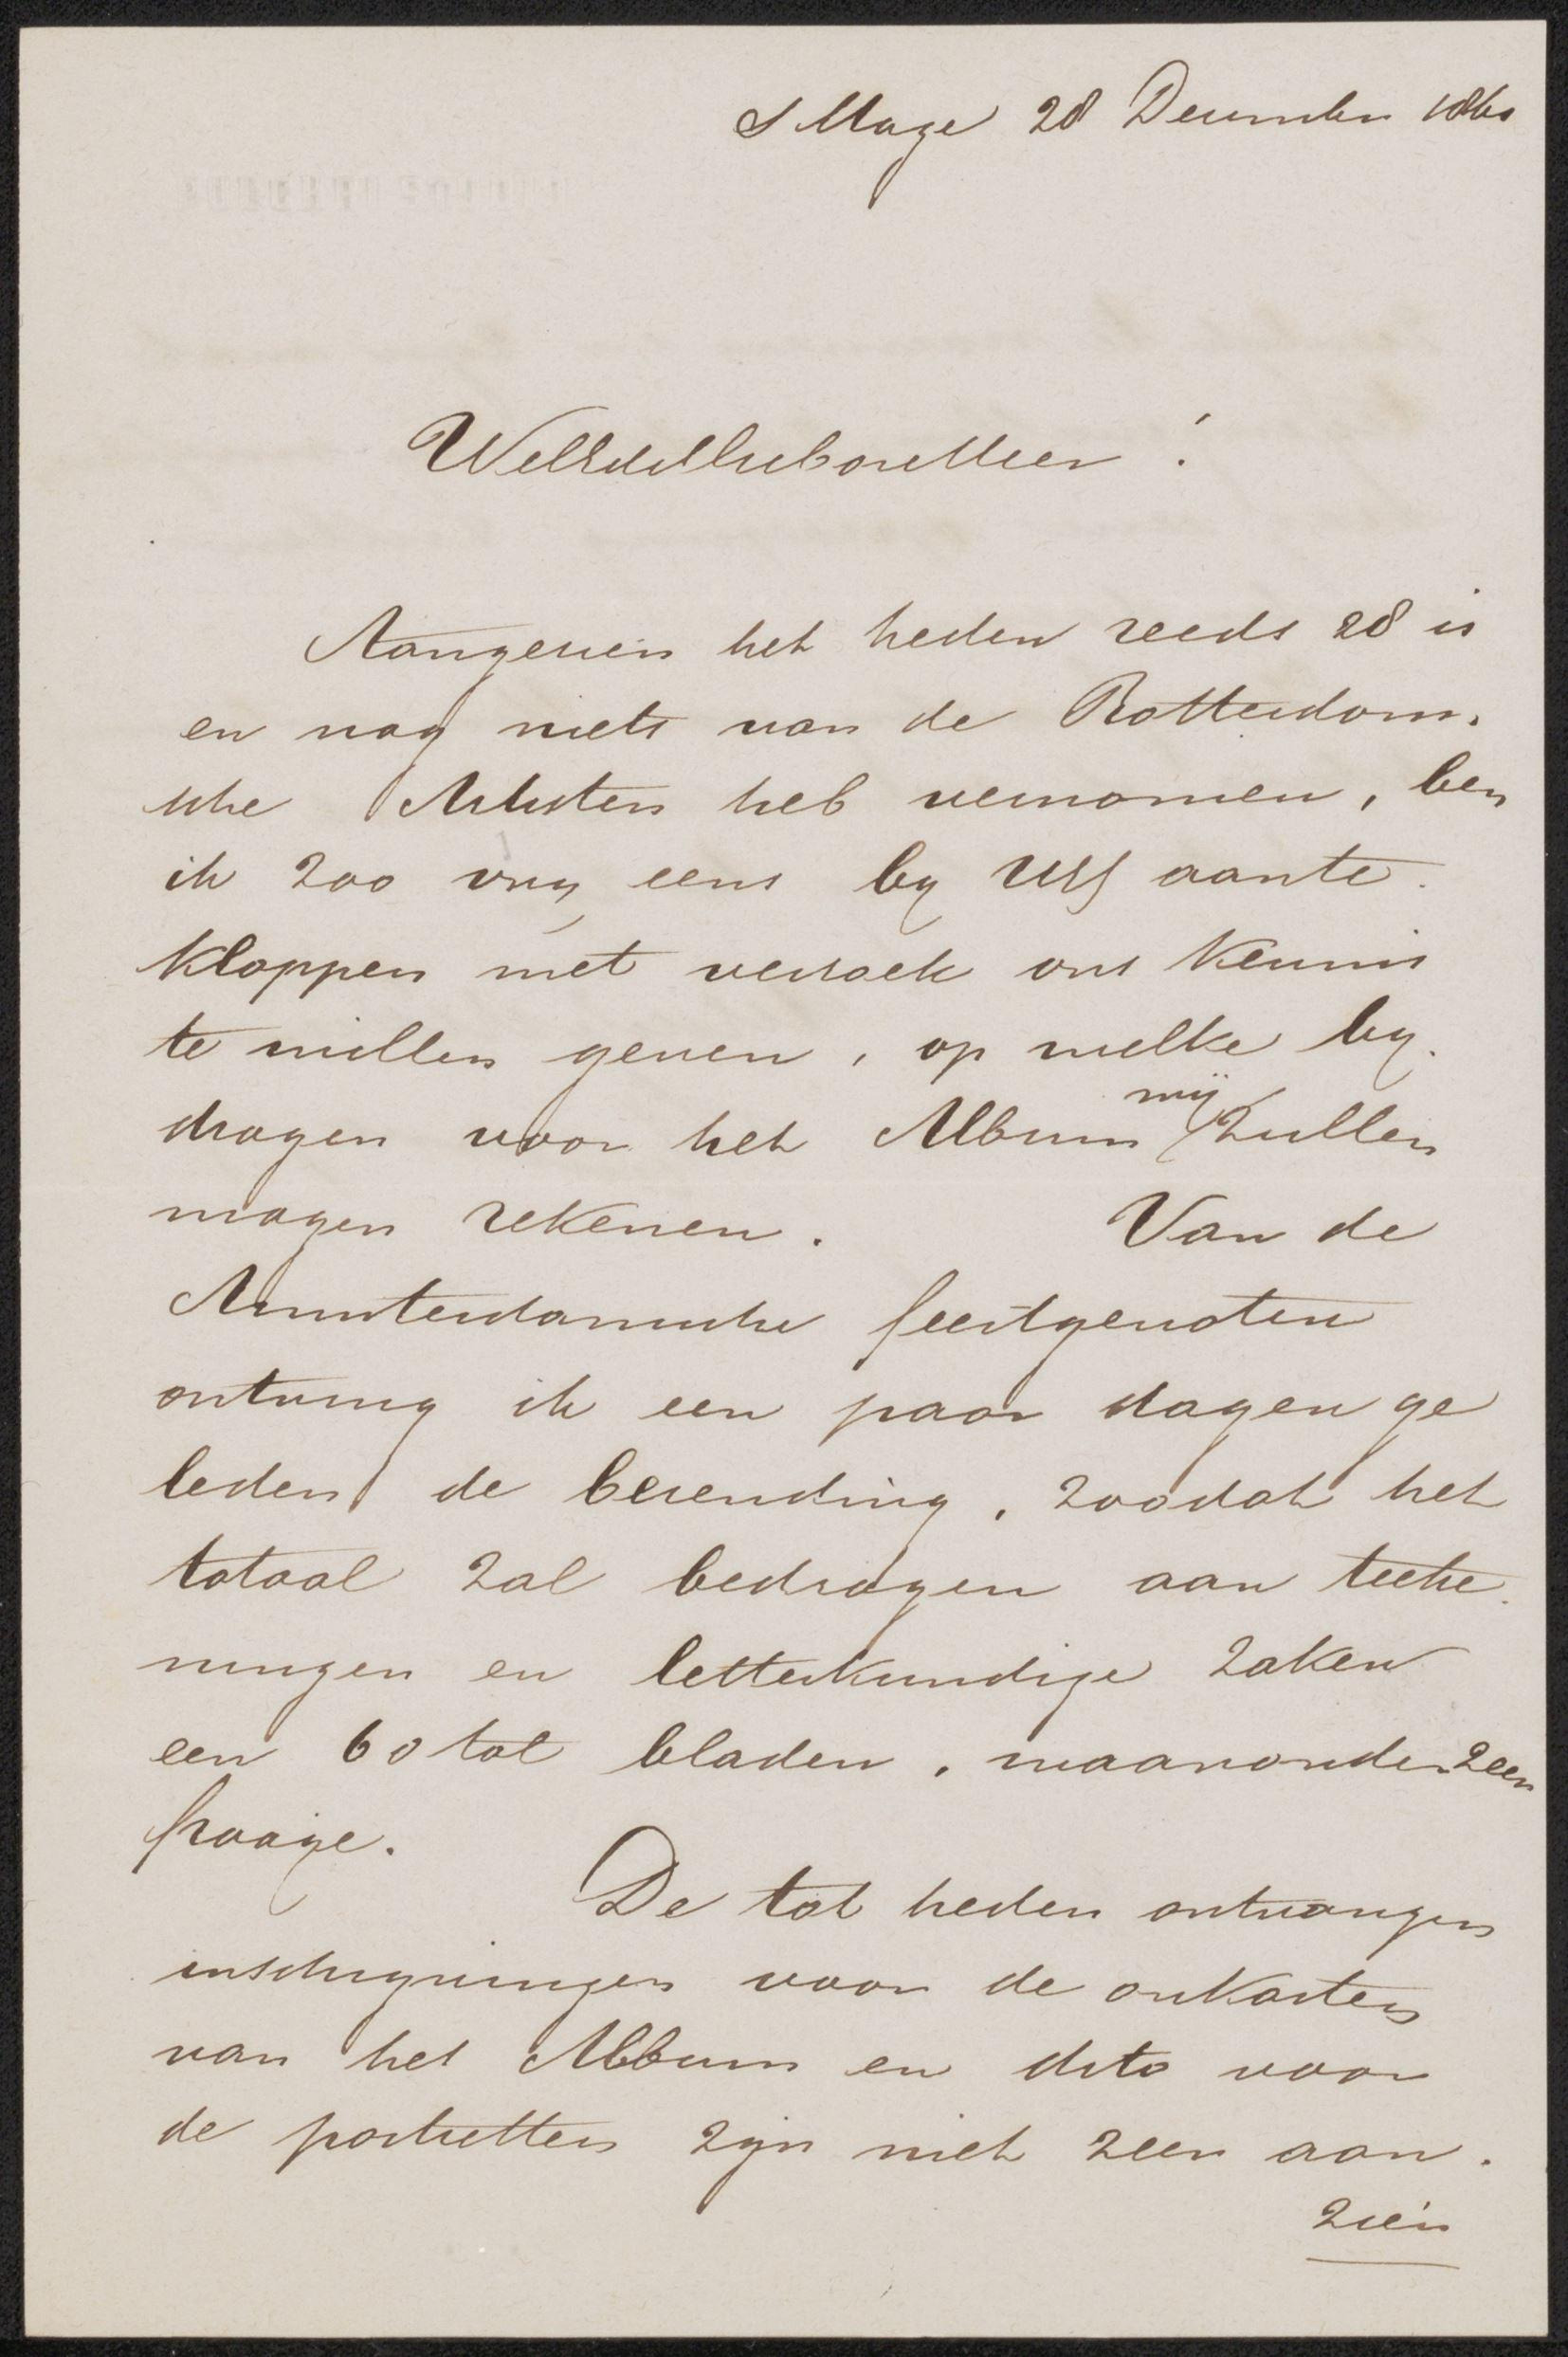 s'Hage 28 December 1860
WelEdelGeborenHeer !
Aangezien het heden reeds 28 is
en nog niets van de Rotterdam-
sche Artisten heb vernomen, ben
ik zoo vrij eens by UEG aante
kloppen met verzoek ons kennis
te willen geven, op welke by-
dragen voor het Album wij zullen
mogen rekenen. Van de
Amsterdamsche feestgenoten
ontving ik een paar dagen ge
leden de bezending, zoodat het
totaal zal bedragen aan teeke-
ningen en letterkundige zaken
een 60 tal bladen, waaronder zeer
fraaije.
De tot heden ontvangen
inschryvingen voor de onkosten
van het Album en dito voor
de portretten zyn niet zeer aan-
zien